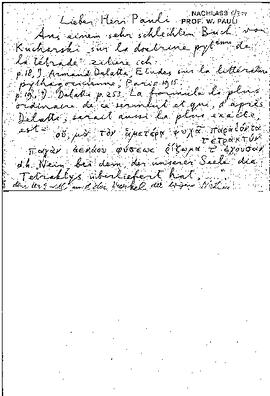 NACHLASS
PROF. W. PAULI
Lieber Herr Pauli
Aus einem sehr schlechten Buch von
Kucharski "sur la doctrine pyt de
la tétrade" zitiere ich
p. 12, J. Armand Delatte, Etudes sur la littérature
pythagoricienne, Paris 1915.
p. 252. La formule la plus
ordinaire de ce serment et qui, d'après
Delatte, serait aussi la plus exacte,
est=
οὐ μὰ τὸν ἁμετέρᾳ ψυχᾷ παραδόντα
τετρακτύν
παγὰν ἀενάου φύσεως ῥίζωμά τ' ἔχουσαν
d.h. Nein, bei dem, der unserer Seele die
Tetraktys überliefert hat,
und die Wurzel der ewigen Natur